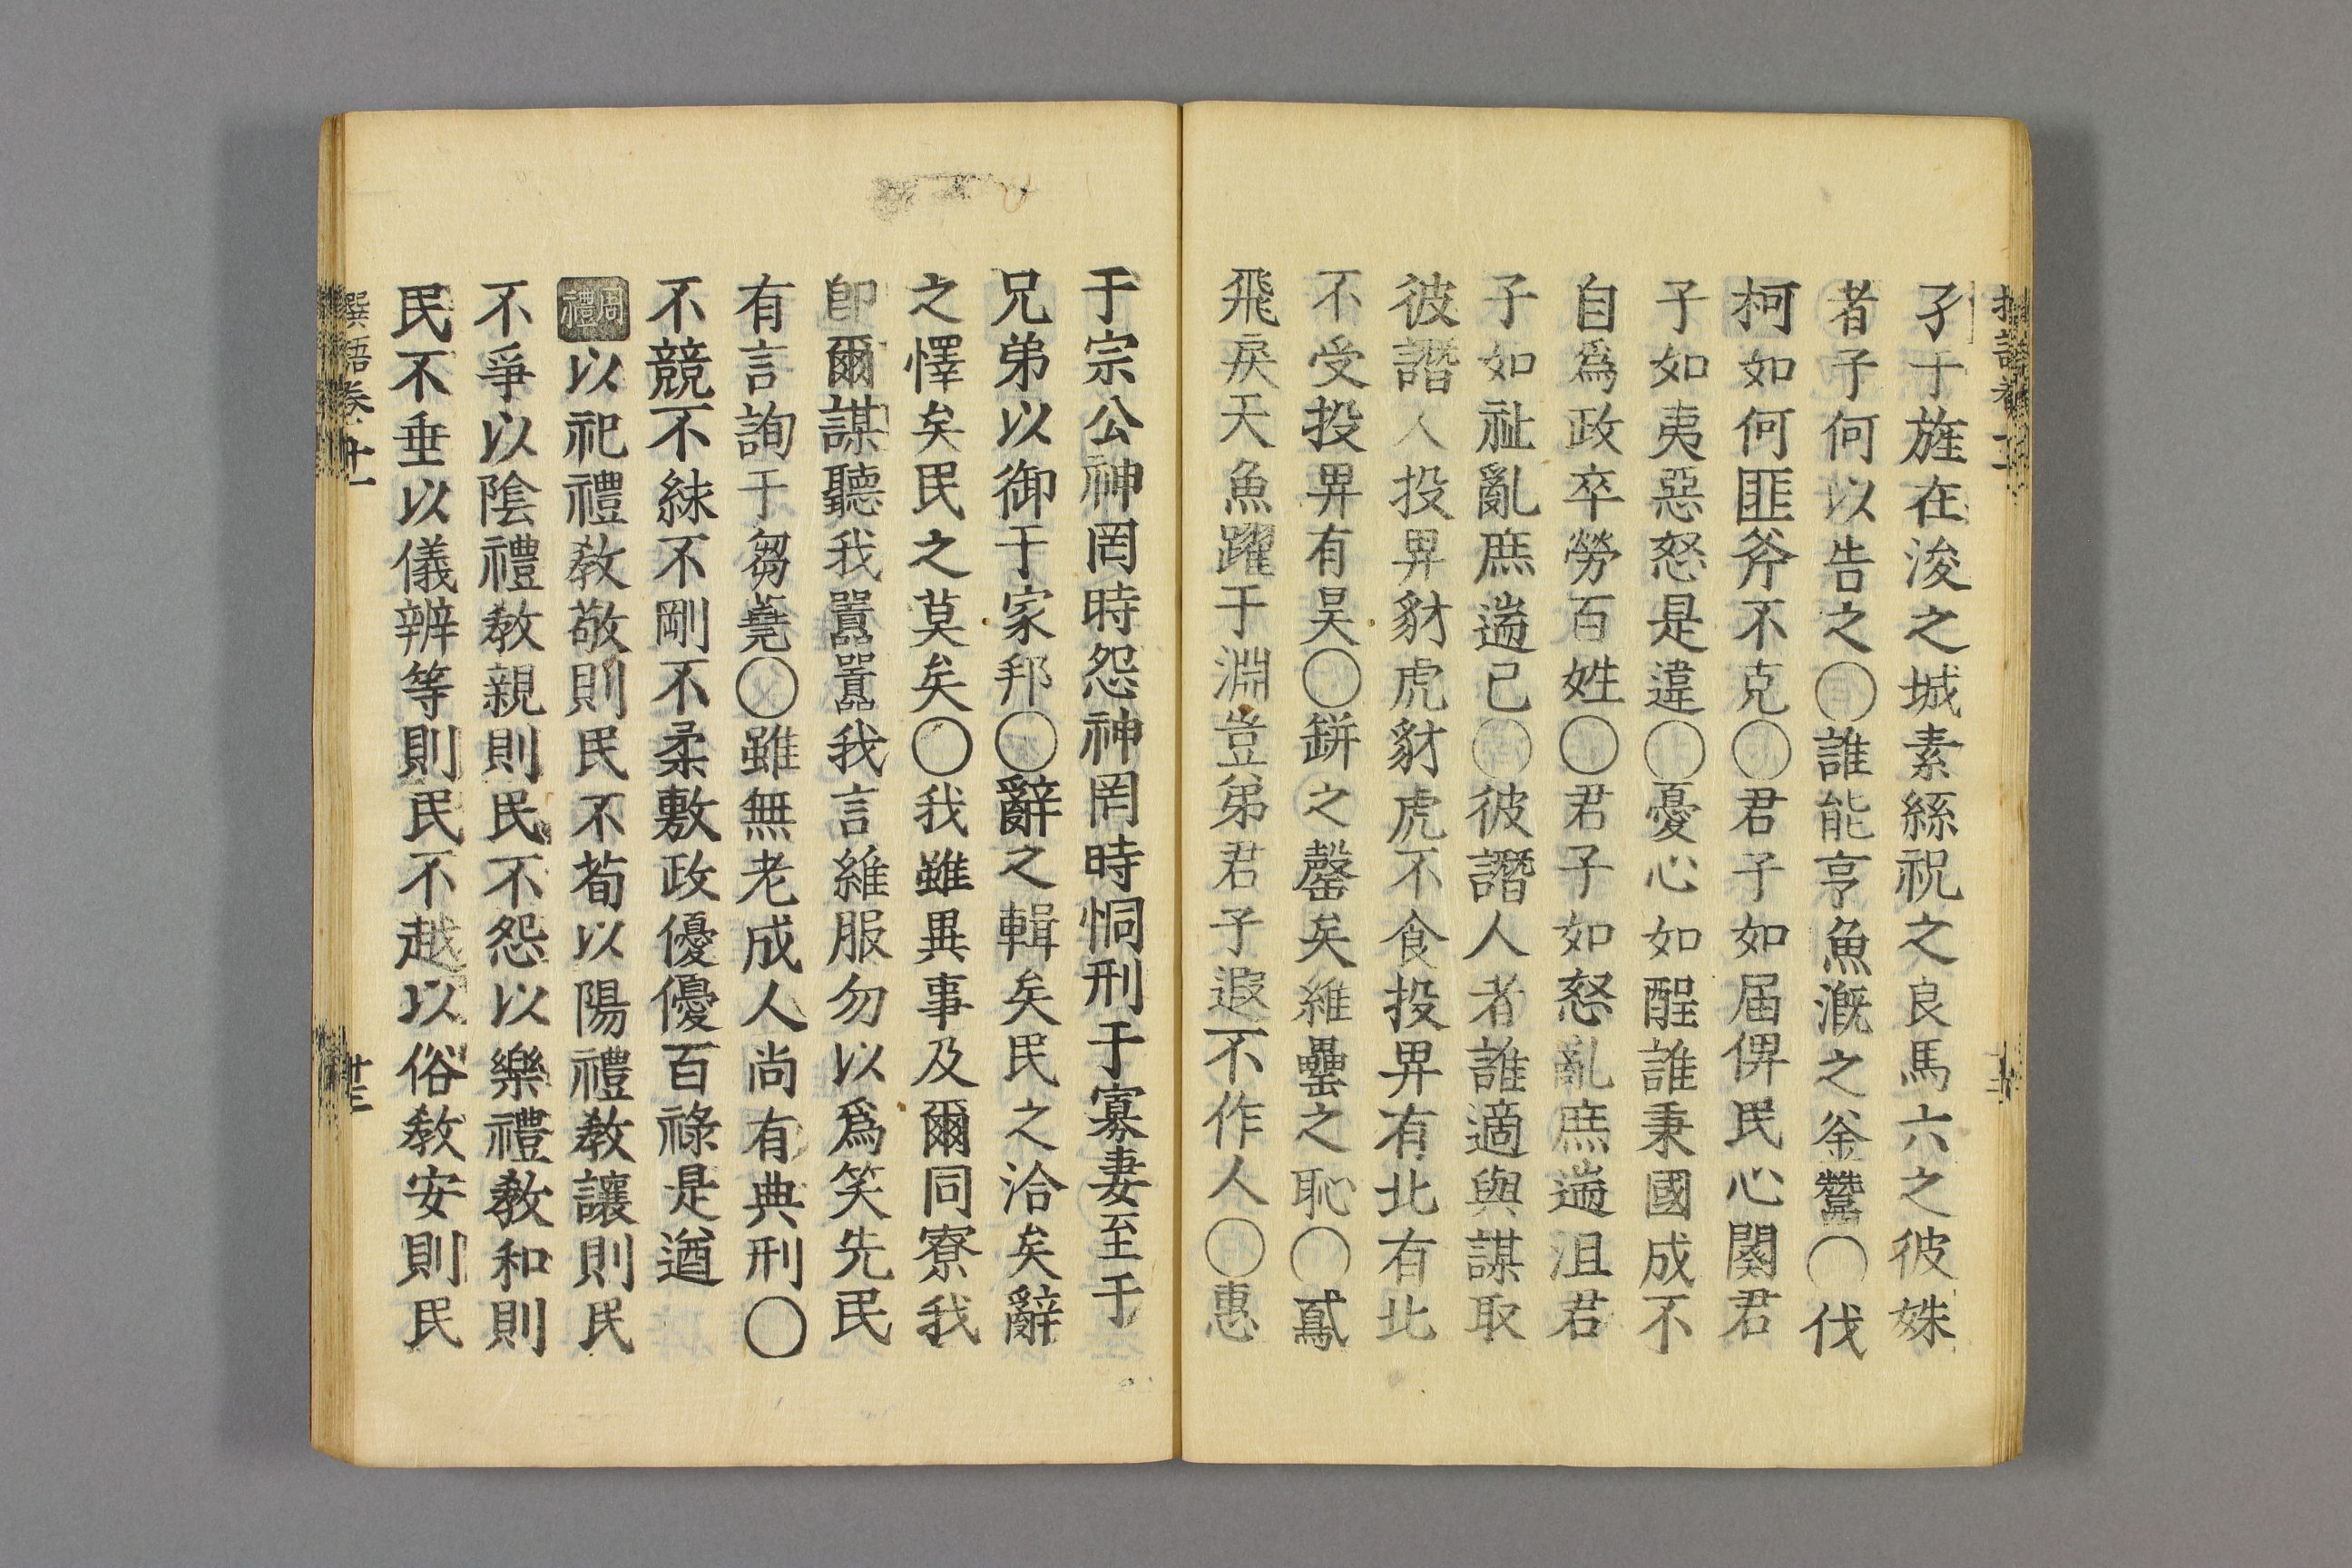 孑于旌在浚之城素絲祝之良馬六之彼姝
者子何以告之○誰能亨魚漑之釜鬵○伐
柯如何匪斧不克○君子如届俾民心闋君
子如夷惡怒是違○憂心如酲誰秉國成不
自爲政卒勞百姓○君子如怒亂庶遄沮君
子如祉亂庶遄已○彼譖人者誰適與謀取
彼譖人投畀豺虎豺虎不食投畀有北有北
不受投畀有昊○缾之罄矣維罍之恥○鳶
飛戾天魚躍于淵豈弟君子遐不作人○惠
于宗公神罔時怨神罔時恫刑于寡妻至于
兄弟以御于家邦○辭之輯矣民之洽矣辭
之懌矣民之莫矣○我雖異事及爾同寮我
卽爾謀聽我囂囂我言維服勿以爲笑先民
有言詢于芻蕘○雖無老成人尚有典刑○
不競不絿不剛不柔敷政優優百祿是遒
周禮以祀禮敎敬則民不苟以陽禮敎讓則民
不爭以陰禮敎親則民不怨以樂禮敎和則
民不乖以儀辨等則民不越以俗敎安則民
撰語卷十一
十三